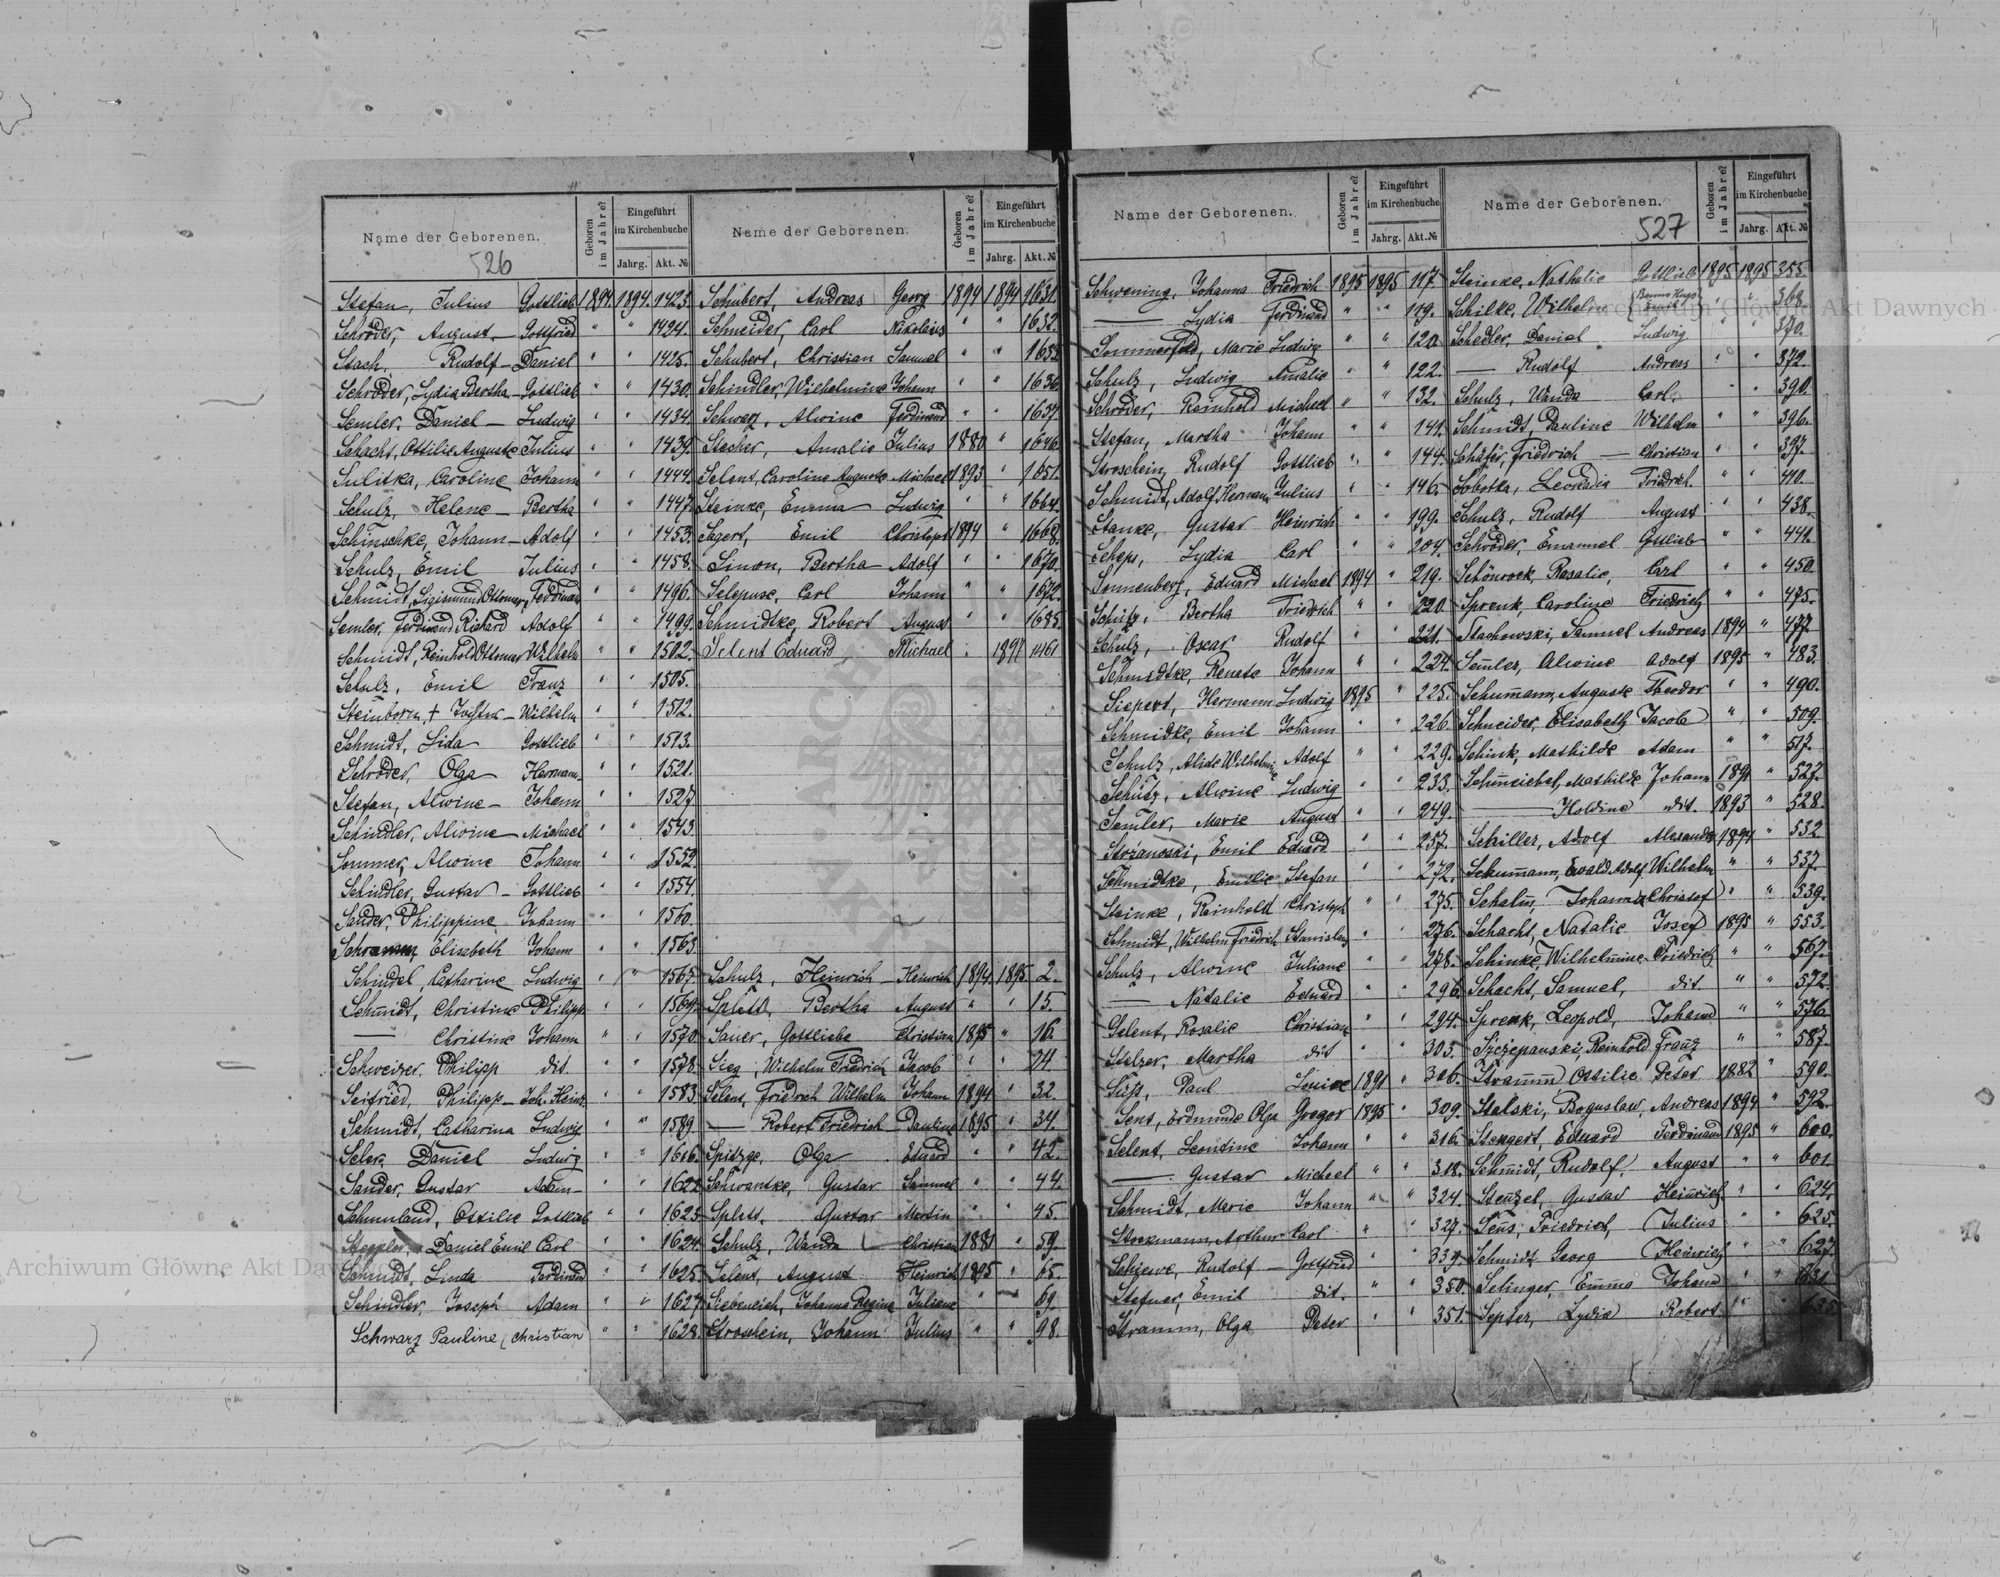 Name der Geborenen.
Geboren im Jahre?
Eingeführt im Kirchenbuche
Jahrg. Akt. №
526
Stefan, Julius Gottlieb 1894 1894 1423.
Schröder, August Gottfried " " 1424.
Stach, Rudolf Daniel " " 1425.
Schröder, Lydia Bertha Gottlieb " " 1430.
Semler, Daniel Ludwig " " 1434.
Schacht, Ottilie Auguste Julius " " 1439.
Sulitka, Caroline Johann " " 1444.
Schulz, Helene Bertha " " 1447.
Schinschke, Johann Adolf " " 1453.
Schulz, Emil Julius " " 1458.
Schmidt, Sigismund Ottomar Ferdinand " " 1496.
Semler, Ferdinand Richard Adolf " " 1499.
Schmidt, Reinhold Ottomar Wilhelm " " 1502.
Schulz, Emil Franz " " 1505.
Steinborn, + Wilhelm " " 1512.
Schmidt, Lida Gottlieb " " 1513.
Schröder, Olga Hermann " " 1521.
Stefan, Alwine Johann " " 1527.
Schindler, Alwine Michael " " 1543.
Sommer, Alwine Johann " " 1552.
Schindler, Gustav Gottlieb " " 1554.
Sander, Philippine Johann " " 1560.
Schramm, Elisabeth Johann " " 1563.
Schindel, Catharine Ludwig " " 1567.
Schmidt, Christine Philipp " " 1569.
— Christine Johann " " 1570.
Schweizer, Philipp dit. " " 1578.
Seifried, Philipp Joh. Heinr. " " 1583.
Schmidt, Catharina Ludwig " " 1589.
Seler, Daniel Ludwig " " 1616.
Sander, Gustav Adam " " 1622.
Ottilie Gottlieb " " 1623.
Daniel Emil Carl " " 1624.
Schmidt, Linda Ferdinand " " 1625.
Schindler, Joseph Adam " " 1627.
Schwarz Pauline Christian " " 1628.
Name der Geborenen.
Geboren im Jahre?
Eingeführt im Kirchenbuche
Jahrg. Akt. №
Schubert, Andreas Georg 1894 1894 1631.
Schneider, Carl Nikolaus " " 1632.
Schubert, Christian Samuel " "
Schindler, Wilhelmine Johann " " 1636.
Schwarz, Alwine Ferdinand " " 1637.
Stecher, Amalie Julius 1880 " 1646.
Selent, Caroline Auguste Michael 1893 " 1651.
Steinke, Emma Ludwig " " 1664.
Sagert, Emil Christoph 1894 " 1668.
Simon, Bertha Adolf " " 1670.
Carl Johann " " 1672.
Schmidtke, Robert August " " 1685.
Selent Eduard Michael " 1897 1461
Schulz, Heinrich Heinrich 1894 1895 2.
Splitt, Bertha August " " 15.
Sauer, Gottliebe Christian 1895 " 16.
Wilhelm Friedrich Jacob " " 24.
Selent, Friedrich Wilhelm Johann 1894 " 32.
— Robert Friedrich Pauline 1895 " 34.
Olga Eduard " " 42.
Schwantke, Gustav Samuel " " 44.
Splitt, Gustav Martin " " 45.
Schulz, Wanda Christian 1881 " 59.
Selent, August Heinrich 1895 " 65.
Siebeneich, Johanna Regina Juliane " " 69.
Stroschein, Johann Julius " " 98.
Name der Geborenen.
Geboren im Jahre?
Eingeführt im Kirchenbuche
Jahrg. Akt. №
Schwening, Johanna Friedrich 1895 1895 117.
— Lydia Ferdinand " " 119.
Sommerfeld, Marie Ludwig " " 120.
Schulz, Ludwig Amalie " " 122.
Schröder, Reinhold Michael " " 132.
Stefan, Martha Johann " " 141.
Stroschein, Rudolf Gottlieb " " 144.
Schmidt, Adolf Hermann Julius " " 146.
Stanke, Gustav Heinrich " " 199.
Scheps, Lydia Carl " " 204.
Sonnenberg, Eduard Michael 1894 " 219.
Schütz, Bertha Friedrich " " 220.
Schulz, Oscar Rudolf " " 221.
Schmidtke, Renate Johann " " 224.
Siepert, Hermann Ludwig 1895 " 225.
Schmidke, Emil Johann " " 226.
Schulz, Alide Wilhelmine Adolf " " 229.
Schütz, Alwine Ludwig " " 233.
Semler, Marie August " " 249.
Emil Eduard " " 257.
Schmidtke, Emilie Stefan " " 272.
Steinke, Reinhold Christoph " " 275.
Schmidt, Wilhelm Friedrich Stanislaus " " 276.
Schulz, Alwine Juliane " " 278.
— Natalie Eduard " " 296.
Selent, Rosalie Christian " " 294.
Stelzer, Martha dit " " 303.
Süss, Paul Louise 1891 " 306.
Sens, Erdmunde Olga Gregor 1895 " 309.
Selent, Leontine Johann " " 316.
— Gustav Michael " " 318.
Schmidt, Marie Johann " " 324.
Stockmann, Arthur Carl " " 327.
Schiewe, Rudolf Gottfried " " 339.
Stefner, Emil dit. " " 350.
Stramm, Olga Peter " " 351.
Name der Geborenen.
527
Geboren im Jahre?
Eingeführt im Kirchenbuche
Jahrg. Akt. №
Steinke, Nathalie Gottlieb 1895 1895 355.
Schilke, Wilhelm " " 368.
Schedler, Daniel Ludwig " " 370.
— Rudolf Andreas " " 372.
Schulz, Wanda Carl " " 390.
Schmidt, Pauline Wilhelm " " 396.
Schäfer, Friedrich — Christian " " 397.
Sobotka, Leokadia Friedrich " " 410.
Schulz, Rudolf August " " 438.
Schröder, Emanuel Gottlieb " " 441.
Schönrock, Rosalie, Carl " " 450.
Sprenk, Caroline Friedrich " " 475.
Stachowski, Samuel Andreas 1894 " 477.
Semler, Alwine Adolf 1895 " 483.
Schumann, Auguste Theodor " " 490.
Schneider, Elisabeth Jacob " " 509.
Schink, Mathilde Adam " " 517.
Schmeichel, Mathilde Johann 1891 " 527.
— Holdine dit. 1893 " 528.
Schiller, Adolf Alexander 1894 " 532
Schumann, Ewald Adolf Wilhelm " " 537.
Schalm, Johann Christof " " 539.
Schacht, Natalie Josef 1895 " 553.
Schinke, Wilhelmine Friedrich " " 567.
Schacht, Samuel, dit. " " 572.
Sprenk, Leopold, Johann " " 576.
Szczepanski, Reinhold Franz " " 587.
Stramm Ottilie Peter 1882 " 590.
Stalski, Boguslaw, Andreas 1894 " 592.
Stengert, Eduard Ferdinand 1895 " 600.
Schmidt, Rudolf, August " " 601.
Stenzel, Gustav Heinrich " " 624.
Sens, Friedrich, Julius " " 625.
Schmidt Georg Heinrich " " 627.
Selinger, Emma Johann " " 631.
Septer, Lydia Robert " " 635.
Archiwum Główne Akt Dawnych
Archiwum Główne Akt Dawnych